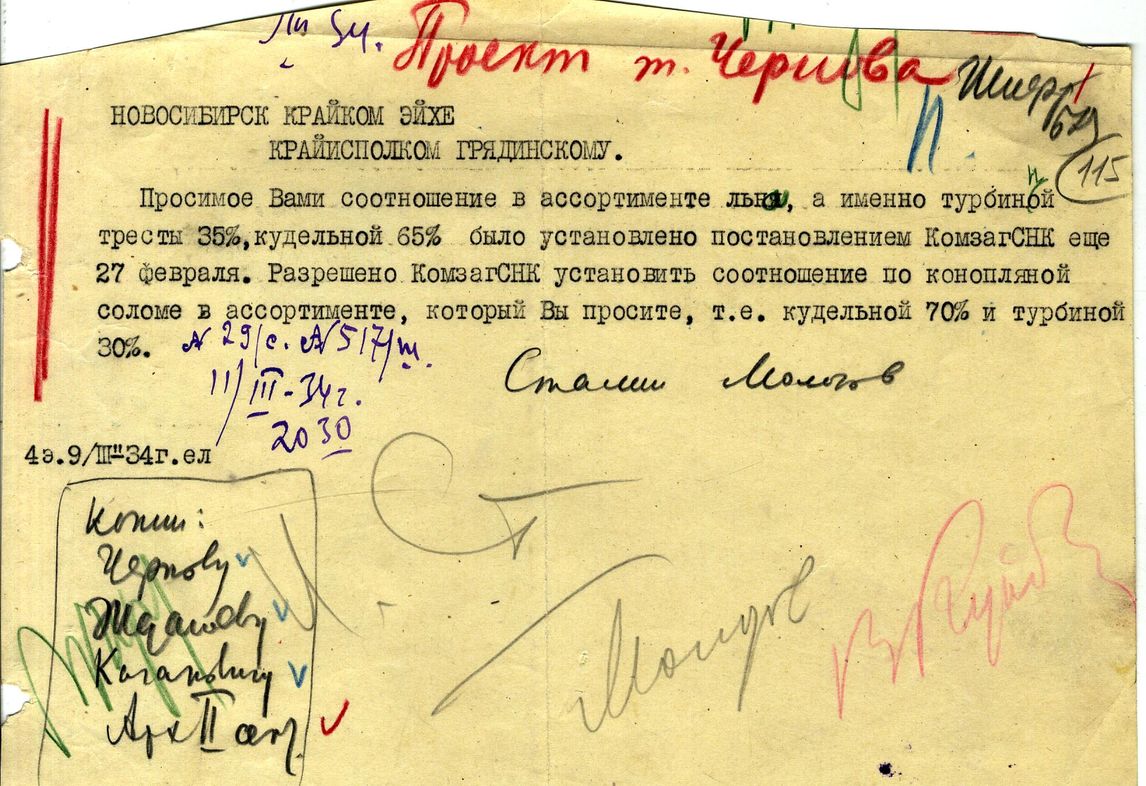 Проект т. Чернова
Шифр
115
НОВОСИБИРСК КРАЙКОМ ЭЙХЕ
КРАЙИСПОЛКОМ ГРЯДИНСКОМУ.
Просимое Вами соотношение в ассортименте льна, а именно турбиной
тресты 35%,кудельной 65% было установлено постановлением КомзагСНК еще
27 февраля. Разрешено КомзагСНК установить соотношение по конопляной
соломе в ассортименте, который Вы просите, т.е. кудельной 70% и турбиной
30%.
N 29/с. N 517/ш.
11/III-34г.
2030
Сталин Молотов
4э.9/III-34г.ел
Копии:
Чернову
Жданову
Кагановичу
Арх II
Молотов
В Куйб